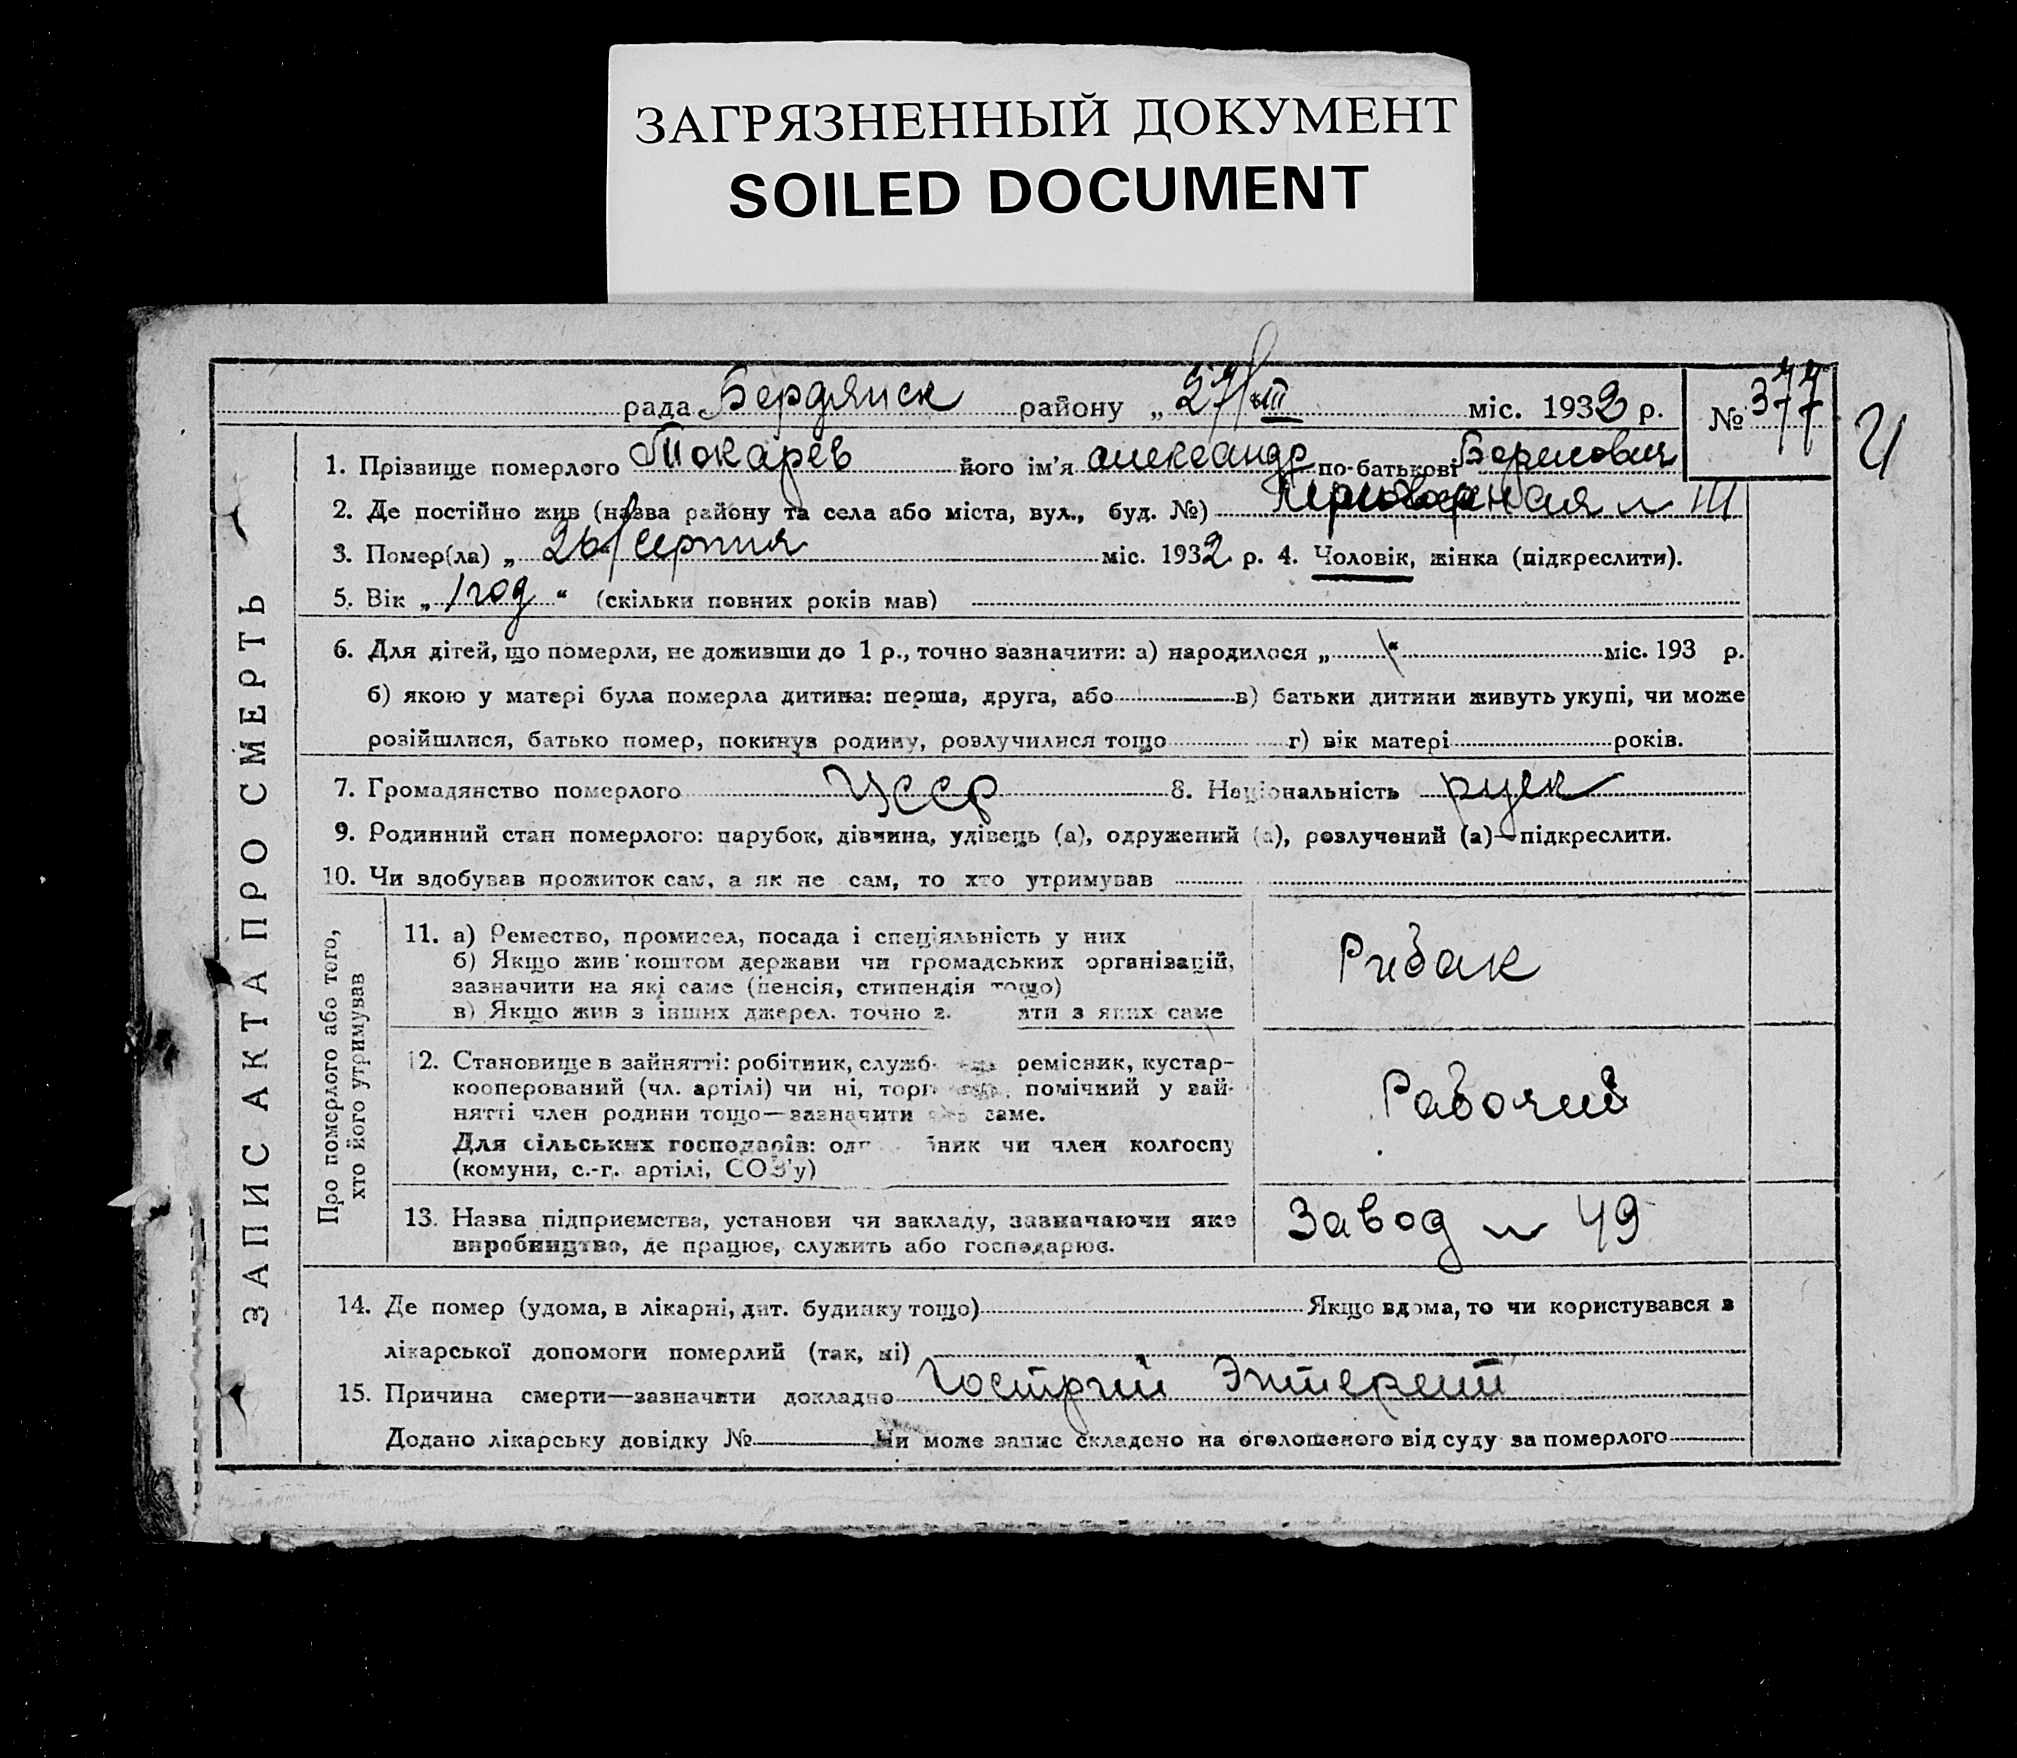 ЗАГРЯЗНЕННЫЙ ДОКУМЕНТ
SOILED DOCUMENT
рада Бердянск району „ 27/VIII міс. 1932 р. № 377
И
ЗАПИС АКТА ПРО СМЕРТЬ
1. Прізвище померлого Токарев його ім'я Александр по-батькові Борисович
2. Де постійно жив (назва району та села або міста, вул., буд. №)
3. Помер(ла) „ 26/Серпня міс. 1932 р. 4. Чоловік, жінка (підкреслити).
5. Вік „ 1 год “ (скільки повних років мав)
6. Для дітей, що померли, не доживши до 1 р., точно зазначити: а) народилося „ “ міс. 193 р.
б) якою у матері була померла дитина: перша, друга, або в) батьки дитини живуть укупі, чи може
розійшлися, батько помер, покинув родину, розлучилися тощо г) вік матері років.
7. Громадянство померлого УССР 8. Національність руск
9. Родинний стан померлого: парубок, дівчина, удівець (а), одружений (а), розлучений (а)—підкреслити.
10. Чи здобував прожиток сам, а як не сам, то хто утримував
Про померлого або того,
хто його утримував
11. а) Ремество, промисел, посада і спеціяльність у них
б) Якщо жив коштом держави чи громадських організацій,
зазначити на які саме (пенсія, стипендія тощо)
в) Якщо жив з інших джерел. точно з. яти з яких саме
Рибак
12. Становище в зайнятті: робітник, служб ремісник, кустар-
кооперований (чл. артілі) чи ні, торг помічний у зай-
нятті член родини тощо—зазначити саме.
Для сільських господарів: од ник чи член колгоспу
(комуни, с.-г. артілі, СОЗ'у)
Рабочий
13. Назва підприємства, установи чи закладу, зазначаючи яке
виробництво, де працює, служить або господарює.
Завод № 49
14. Де помер (удома, в лікарні, дит. будинку тощо) Якщо вдома, то чи користувався з
лікарської допомоги померлий (так, ні)
15. Причина смерти—зазначити докладно Гострий Энтерит
Додано лікарську довідку № Чи може запис складено на оголошеного від суду за померлого